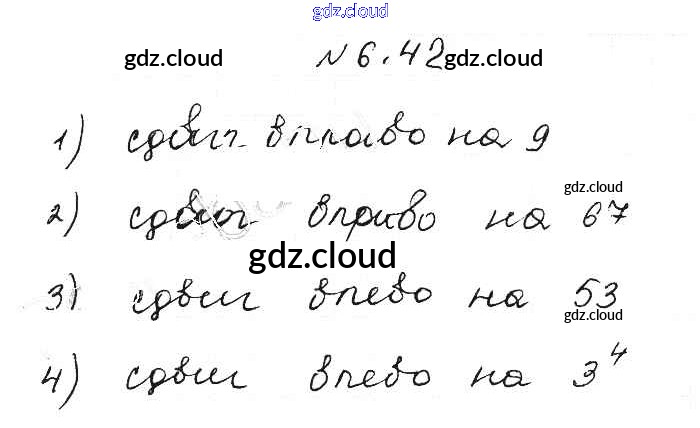 gdz.cloud
gdz.cloud № 6.42 gdz.cloud
1) сдвиг вправо на 9
gdz.cloud
2) сдвиг вправо на 67
gdz.cloud
3) сдвиг влево на 53
gdz.cloud
4) сдвиг влево на 3⁴